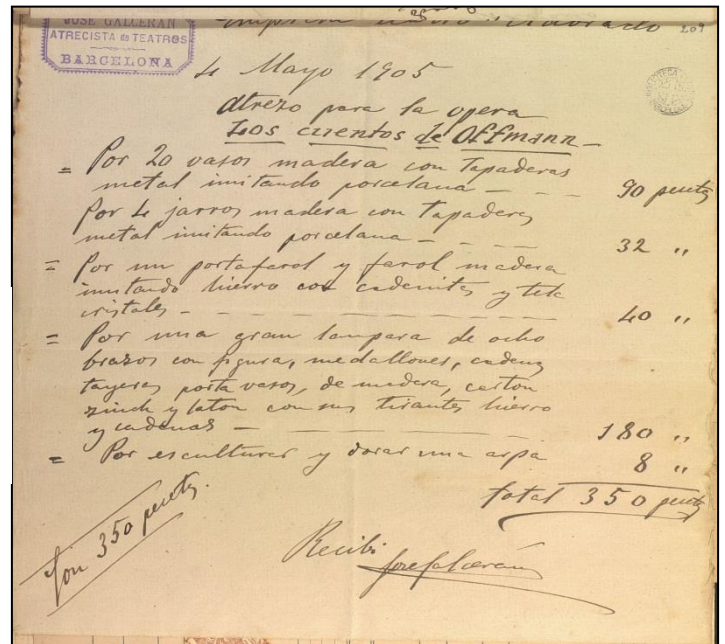 JOSÉ GALCERAN
ATRECISTA de TEATROS
BARCELONA
209
4 Mayo 1905
Atrezo para la opera
Los cuentos de Offmann
= Por 20 vasos madera con Tapaderas
metal imitando porcelana — 90 pesetas
Por 4 jarros madera con Tapaderas
metal imitando porcelana — 32 "
= Por un portafarol y farol madera
imitando hierro con cadenitas y tela
cristales — 40 "
= Por una gran lampara de ocho
brazos con figura, medallones, cadenas
porta vasos, de madera, carton
zinch y laton con sus tirantes hierro
y cadenas — 180 "
= Por esculturar y dorar una arpa 8 "
Total 350 pesetas
Son 350 pesetas.
Recibi
José Galcerán